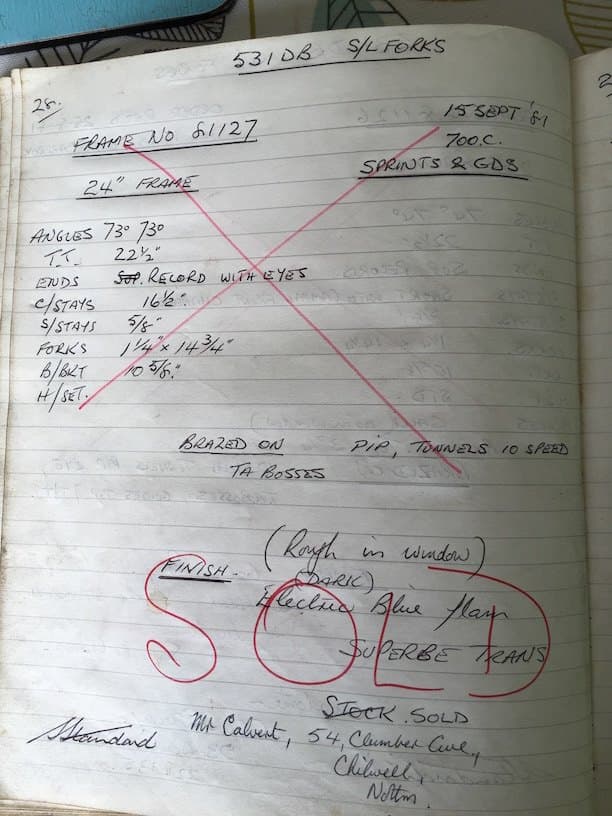 531 DB S/L FORKS
28.
15 SEPT '81
FRAME NO 81127
700.C.
SPRINTS & GDS
24" FRAME
ANGLES 73° 73°
T.T. 22½"
ENDS SUP. RECORD WITH EYES
C/STAYS 16½".
S/STAYS 5/8"
FORKS 1¼" x 14¾"
B/BKT 10 5/8."
H/SET.
BRAZED ON PIP, TUNNELS 10 SPEED
TA BOSSES
(Rough in window)
FINISH. (DARK)
Electric Blue flam
SUPERBE TRANS
SOLD
STOCK. SOLD
Standard Mr Calvert, 54, Clumber Ave.,
Chilwell,
Nottm.